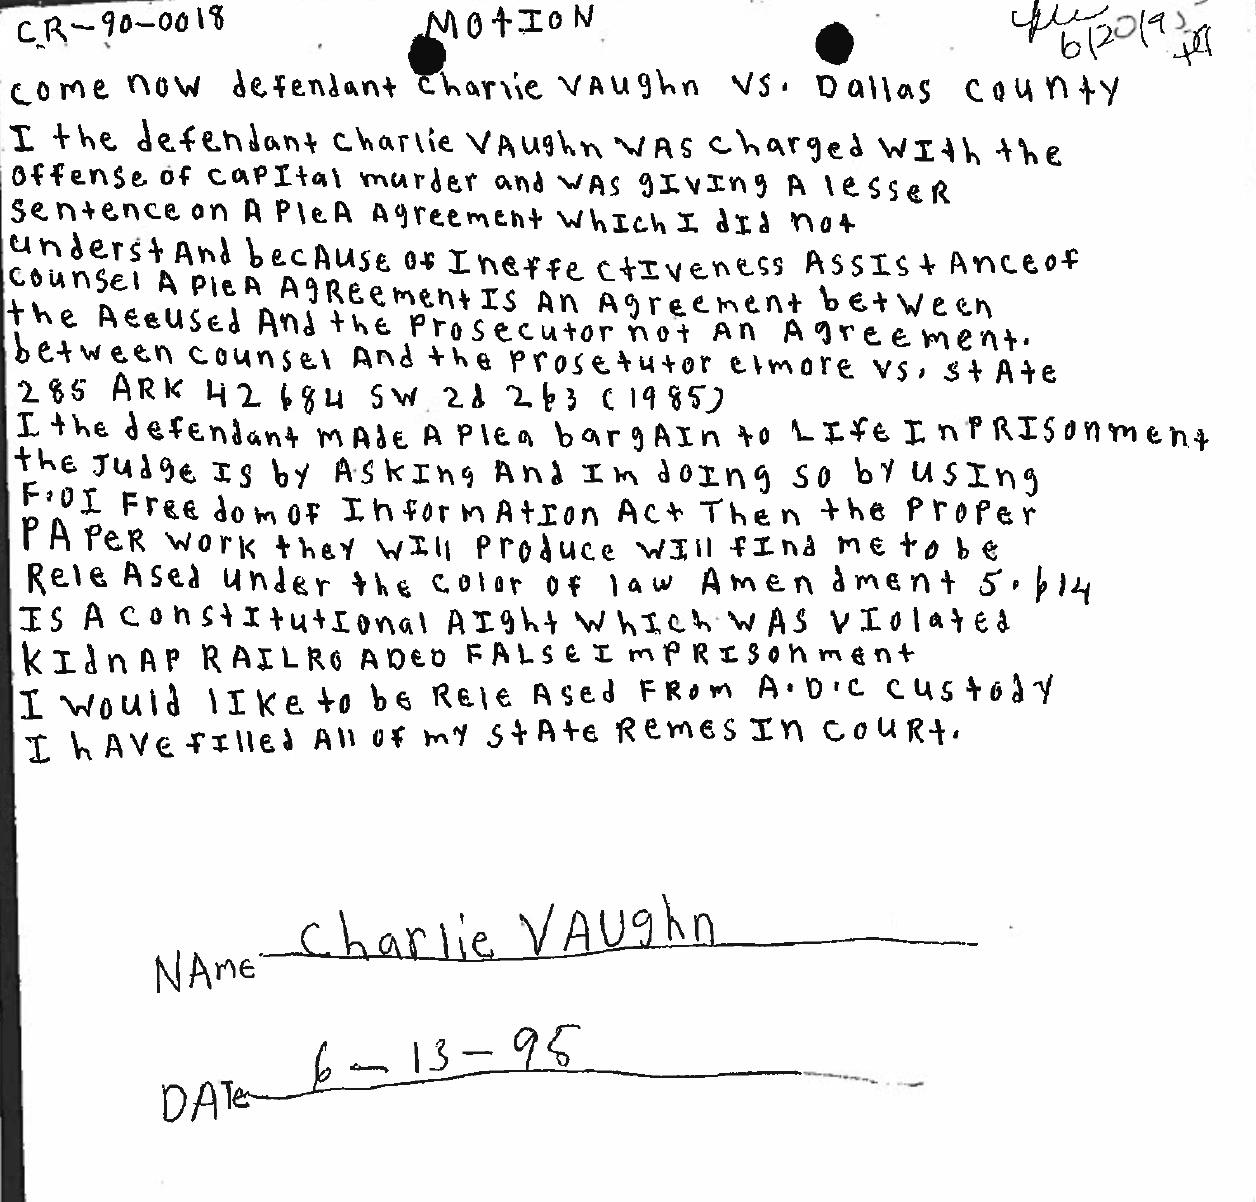 CR-90-0018 MOtION 6/20/95
come now defendant Charlie VAughn VS. Dallas county
I the defendant charlie VAughn WAS charged WIth the
offense of capItal murder and WAS gIVIng A lesseR
sentence on A PleA Agreement WhIch I dId not
understAnd becAuse of IneffectIveness AssIstAnceof
counsel A PleA AgReement IS An Agreement between
the Aeeused And the Prosecutor not An Agreement.
between counsel And the Prosetutor elmore vs. stAte
285 ARK 42 684 SW 2d 263 (1985)
I the defendant mAde A Plea bargAIn to LIfe InPRISonment
the Judge IS by ASKIng And Im doing so by usIng
F.OI FreedomoF InformAtIon Act Then the ProPer
PAPeR work they WIll Produce WIll fInd me to be
ReleAsed under the color of law Amendment 5.614
IS A constItutIonal AIght WhIch WAS VIolated
KIdnAP RAILROADED FALSe ImPRISonment
I Would lIKe to be ReleAsed FRom A.D.C custody
I hAVe fIlled All of my stAte Remes In couRt.
NAme Charlie VAughn
DATe 6-13-95